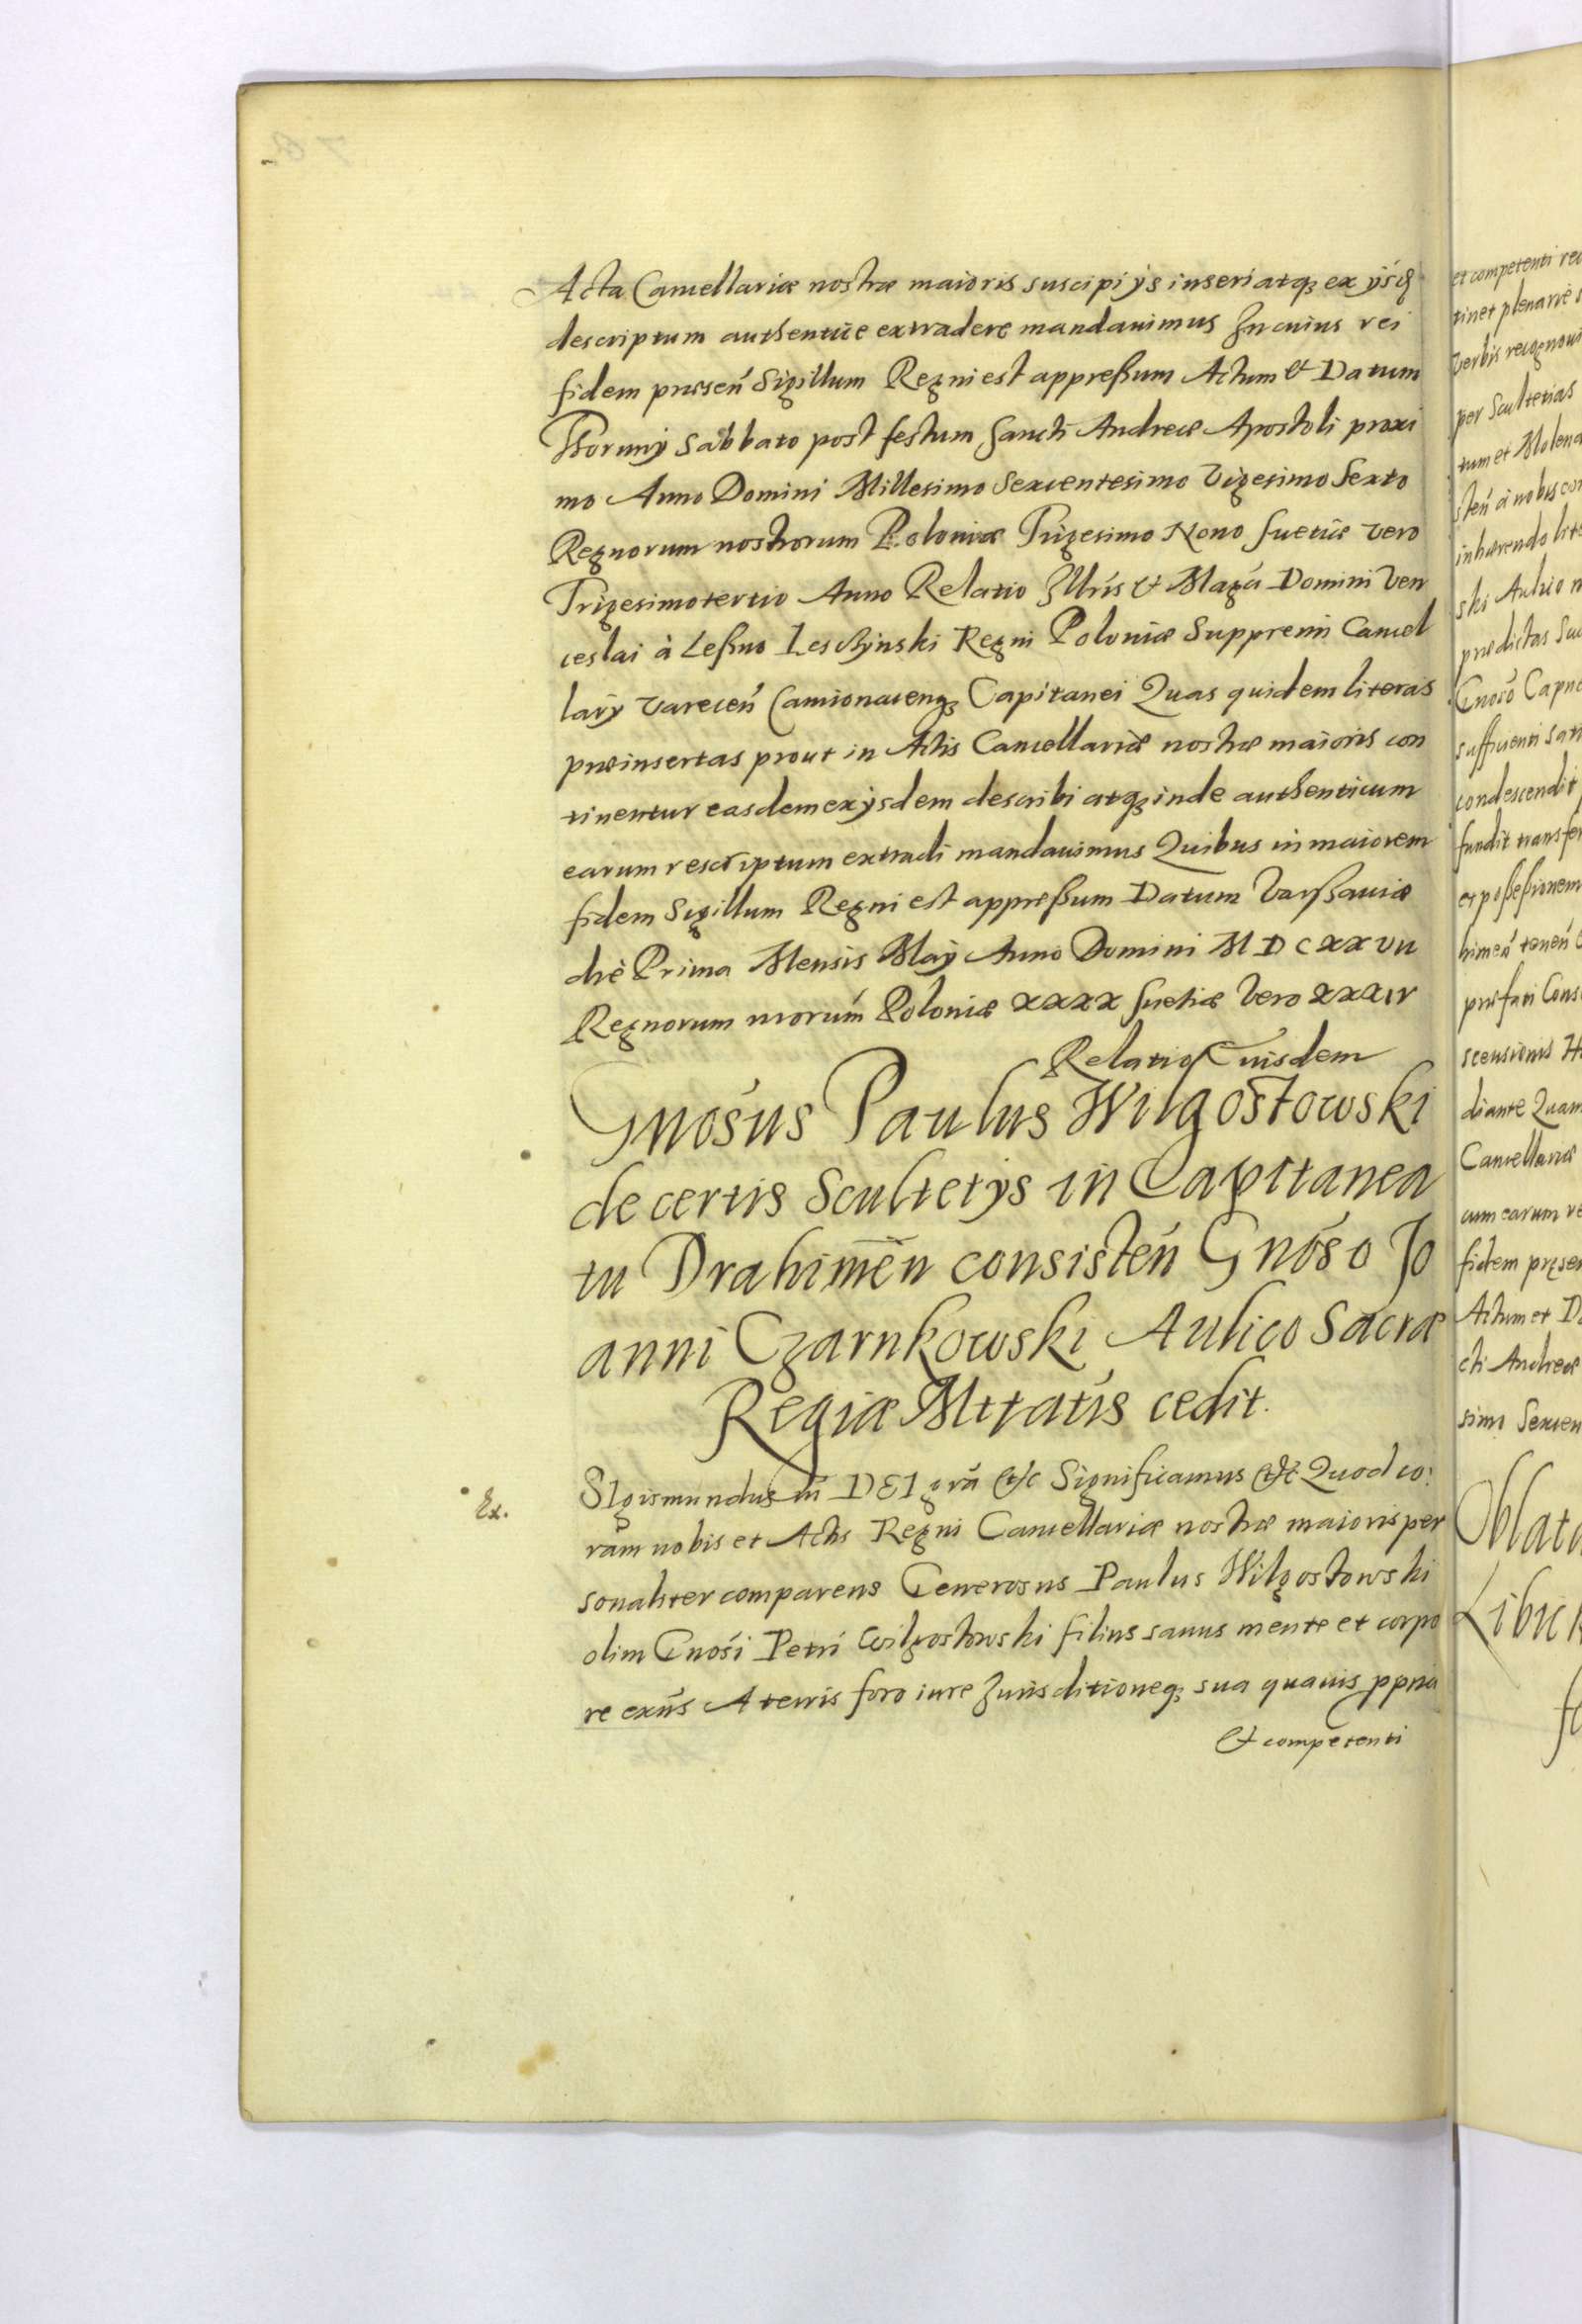 Acta Cancellariæ nostræ maioris suscipi ijs inseri atq₃ ex ijsq₃
descriptum authentice extradere mandauimus In cuius rei
fidem præseń Sigillum Regni est appreßum Actum & Datum
Thorunij Sabbato post festum Sancti Andreæ Apostoli proxi
mo Anno Domini Millesimo Sexcentesimo Vigesimo Sexto
Regnorum nostrorum Poloniæ Trigesimo Nono Suetiæ vero
Trigesimotertio Anno Relatio Illŕis & Magći Domini Ven
ceslai à Leßno Leschÿnski Regni Poloniæ Suppremi Cancel
larÿ Vareceń Camionaceńq₃ Capitanei Quas quidem literas
præinsertas prout in Actis Cancellariæ nostræ maioris con
tinentur easdem ex ÿsdem describi atq₃ inde authenticum
earum rescriptum extradi mandauimus Quibus in maiorem
fidem Sigillum Regni est appreßum Datum Varßauiæ
die Prima Mensis Maÿ Anno Domini MDCXXVII
Regnorum nrorum̃ Poloniæ XXXX Suetiæ Vero XXXIV
Relatio Eiusdem
Gnosús Paulus Wilgostowski
de certis Scultetÿs in Capitanea
tu Drahimeñ consisteń Gnóso Jo
anni Czarnkowski Aulico Sacræ
Regiæ Mttatis cedit.
Ex.
SIgismundus III DEI gra̅ &c Significamus &c Quod co:
ram nobis et Actis Regni Cancellariæ nostræ maioris per
sonaliter comparens Generosus Paulus Wilgostowski
olim Gnosi Petri Wilgostowski filius sanus mente et corpo
re exńs A terris foro iure Iurisditioneq₃ sua quauis ppria
& competenti
et competenti
tinet plenarie
verbis recognoui
per Scultetias
tum et Molend
steń à nobis con
inhærendo lite
ski Aulico n
prædictas Scu
Gnosó Capne
sufficienti sati
condescendit
fundit transfer
et poßeßionem
himeń teneń
præfati Cons
scensionis
diante Quam
Cancellariæ
cum earum re
fidem præsen
Actum et Da
cti Andreæ
simo Sexcen
Oblata
Libick